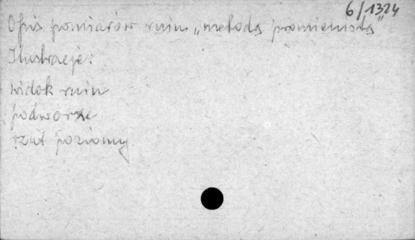 6/1324
Opis pomiarów ruin „metodą promienistą"
Ilustracje:
widok ruin
podworze
rzut poziomy